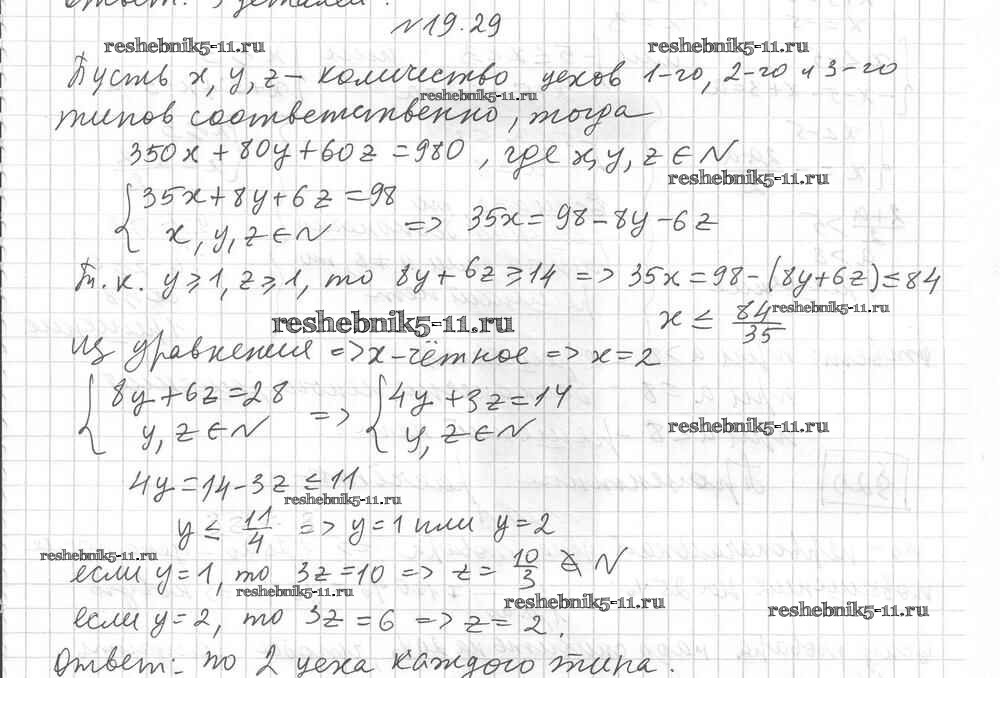 Ответ: 3 деталей.
№19.29
reshebnik5-11.ru reshebnik5-11.ru
Пусть x, y, z – количество цехов 1-го, 2-го и 3-го
reshebnik5-11.ru
типов соответственно, тогда
350x + 80y + 60z = 980, где x, y, z ∈ N
reshebnik5-11.ru
{ 35x + 8y + 6z = 98
x, y, z ∈ N => 35x = 98 – 8y – 6z
Т.к. y ≥ 1, z ≥ 1, то 8y + 6z ≥ 14 => 35x = 98 – (8y + 6z) ≤ 84
reshebnik5-11.ru
reshebnik5-11.ru x ≤ 84/35
Из уравнения => x – чётное => x = 2
{ 8y + 6z = 28 => { 4y + 3z = 14
y, z ∈ N y, z ∈ N
reshebnik5-11.ru
4y = 14 – 3z ≤ 11
reshebnik5-11.ru
y ≤ 11/4 => y = 1 или y = 2
reshebnik5-11.ru
если y = 1, то 3z = 10 => z = 10/3 ∉ N
reshebnik5-11.ru reshebnik5-11.ru
reshebnik5-11.ru
если y = 2, то 3z = 6 => z = 2.
Ответ: по 2 цеха каждого типа.